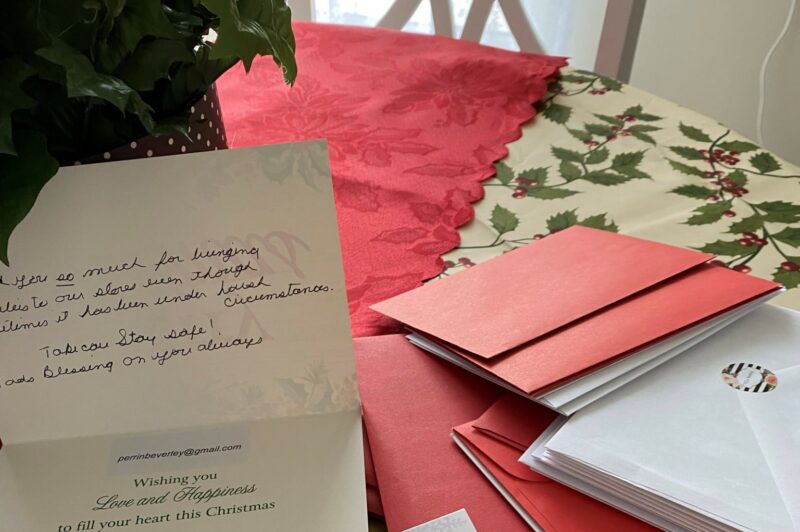 you so much for bringing
to our stores even though
it has been under harsh
circumstances.
Take care Stay safe!
Blessing on you always
perrinbeverley@gmail.com
Wishing you
Love and Happiness
to fill your heart this Christmas